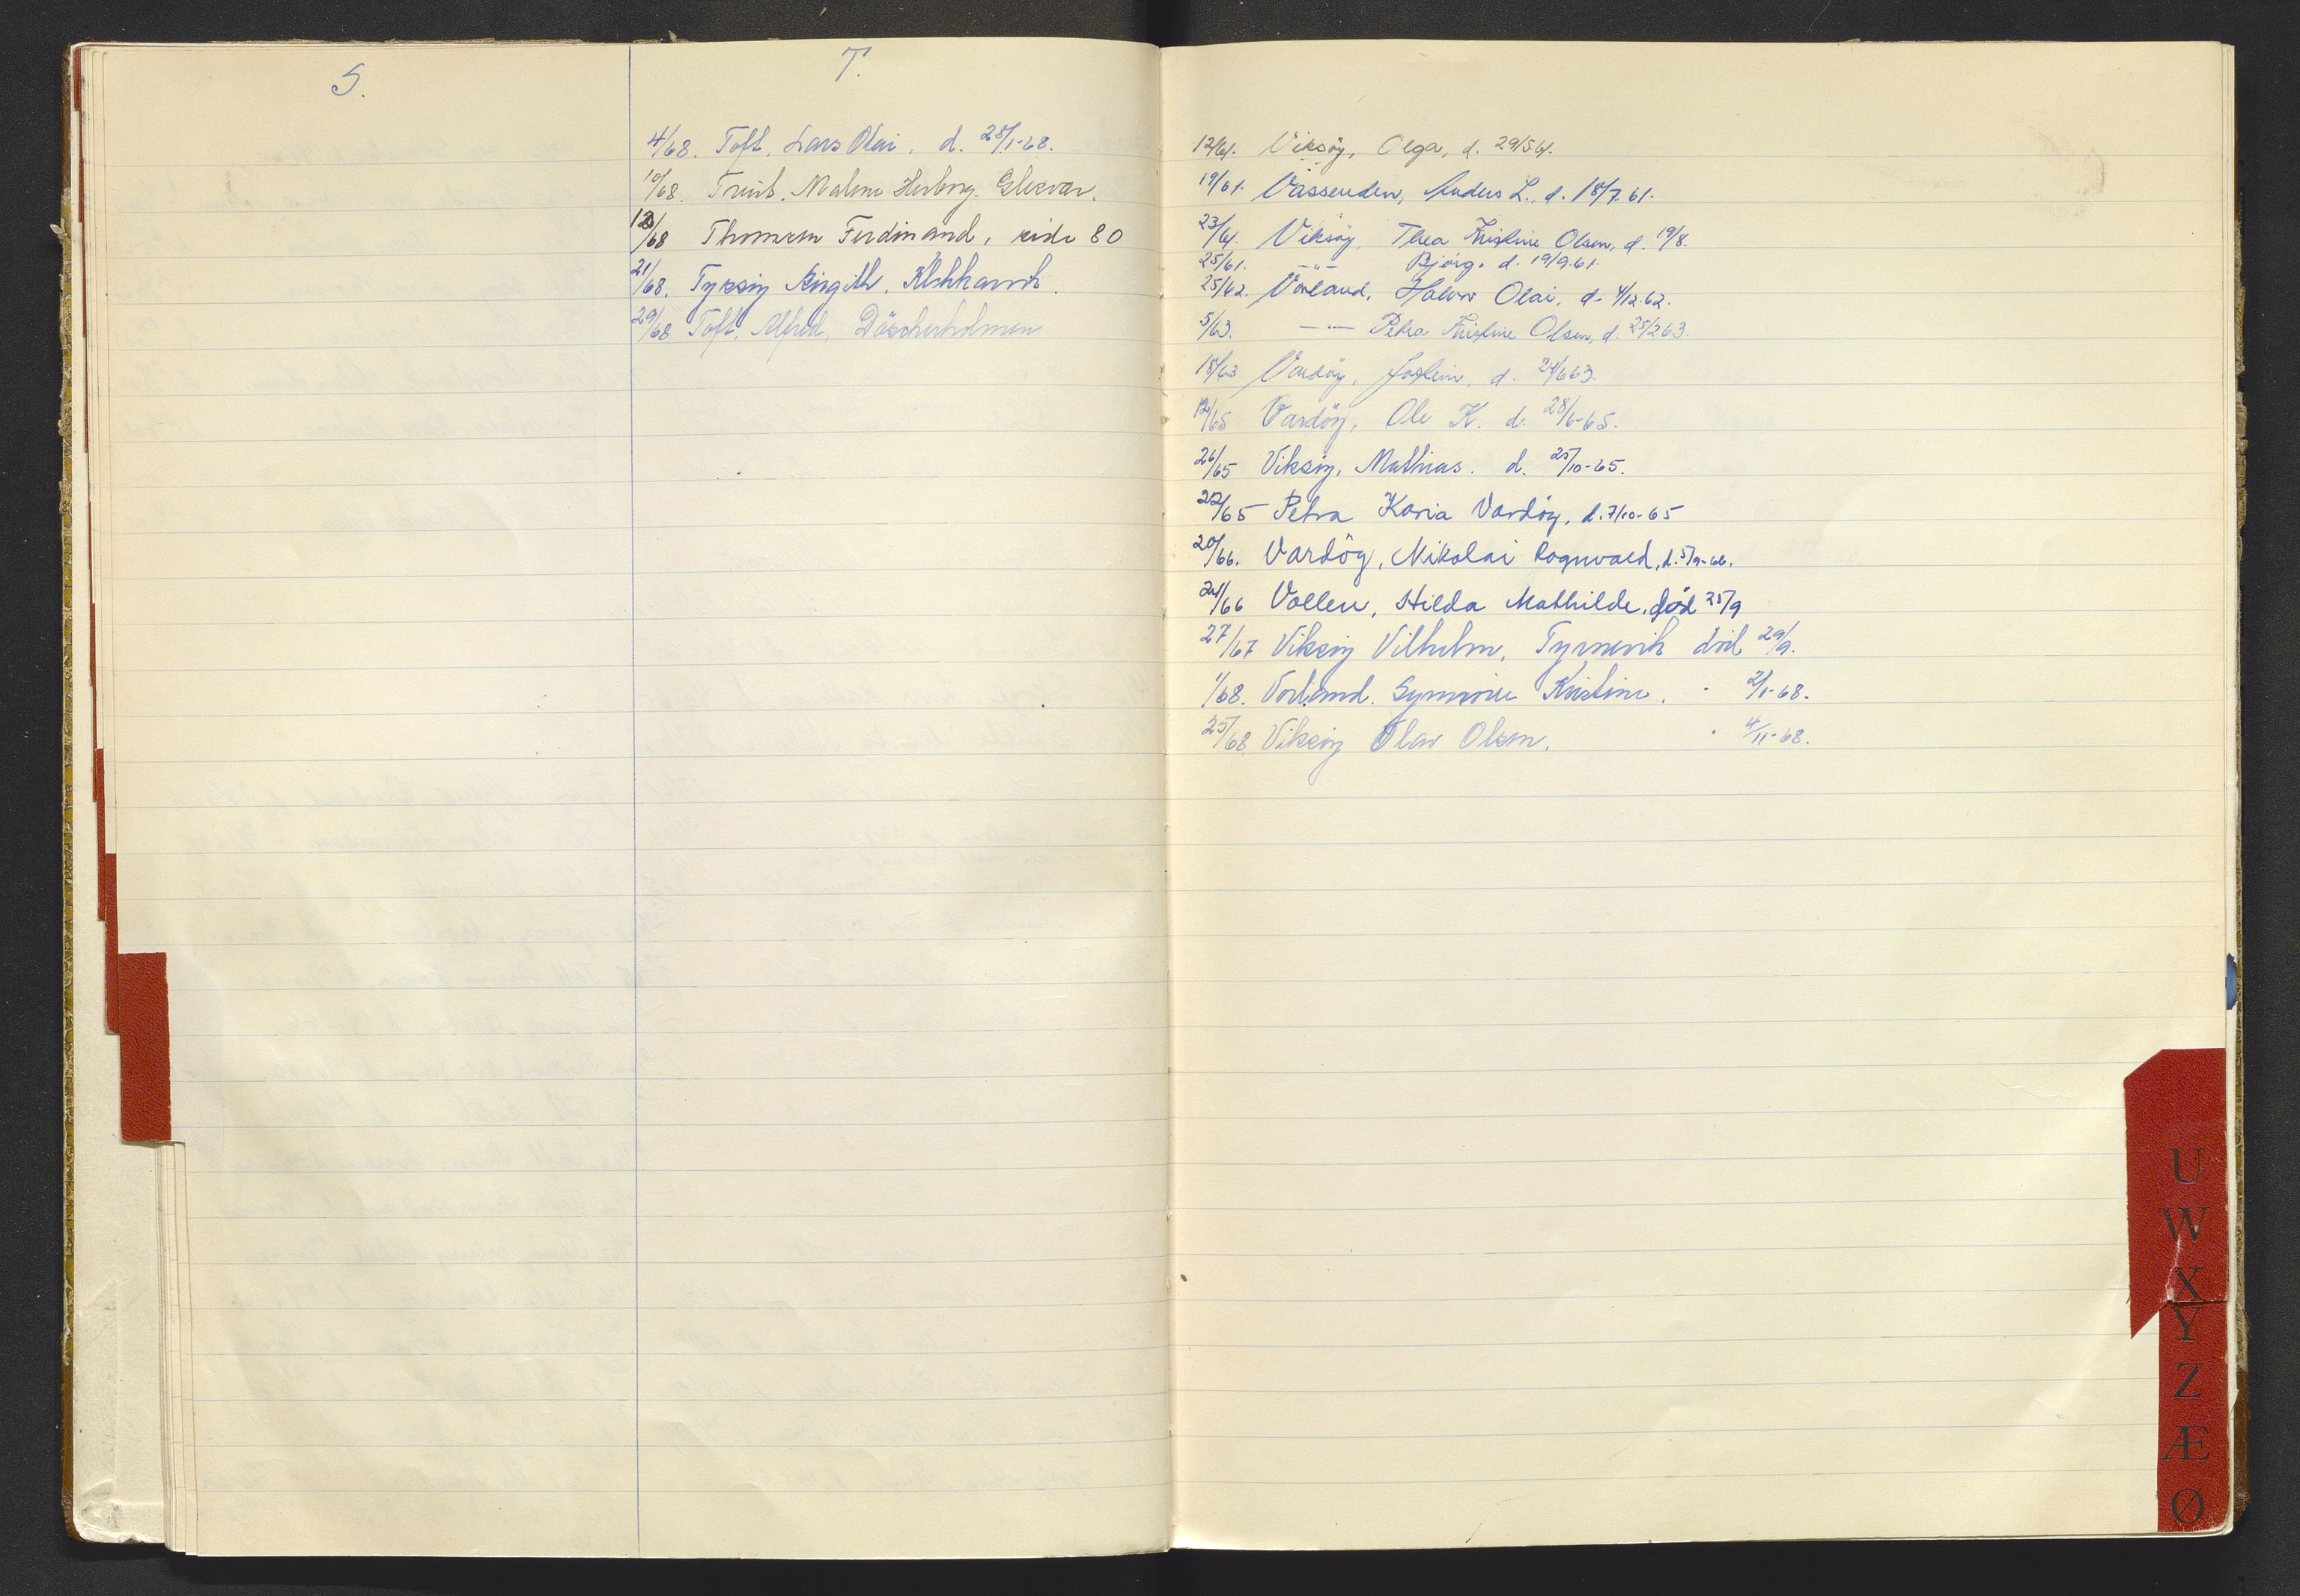 S.
T.
4/68. Toft, Lars Olai, d. 28/1-68.
10/68. Malene Herborg. Glesvær.
12/68 Thomsen Ferdinand, side 80
21/68. Tyksøy Birgith, Klokkarvik.
29/68 Toft, Alfred, Döscherholmen
12/61. Viksøy, Olga, d. 29/5 61.
19/61. Vassenden, Anders L., d. 18/7. 61.
23/61. Viksøy, Thea Kristine Olsen, d. 19/8.
25/61. -"- Bjørg, d. 19/9.61.
25/62. Vorland, Halvor Olai, d. 4/12.62.
5/63. -"- Petra Kristine Olsen, d. 25/2 63.
18/63 Vardøy, Jostein, d. 24/6 63.
12/65 Vardöy, Ole K. d. 28/6-65.
26/65 Viksøy, Mathias. d. 25/10-65.
22/65 Petra Karia Vardöy, d. 7/10-65
20/66. Vardög, Nikolai Rognvald, d. 5/9-66.
21/66 Vollen, Hilda Mathilde, død 25/9
27/67 Viksøy Vilhelm, død 29/9.
1/68. Vorland. Synnøve Kristine. " 2/1-68.
25/68. Viksøy Olav Olsen. " 4/11-68.
U
W
X
Y
Z
Æ
Ø